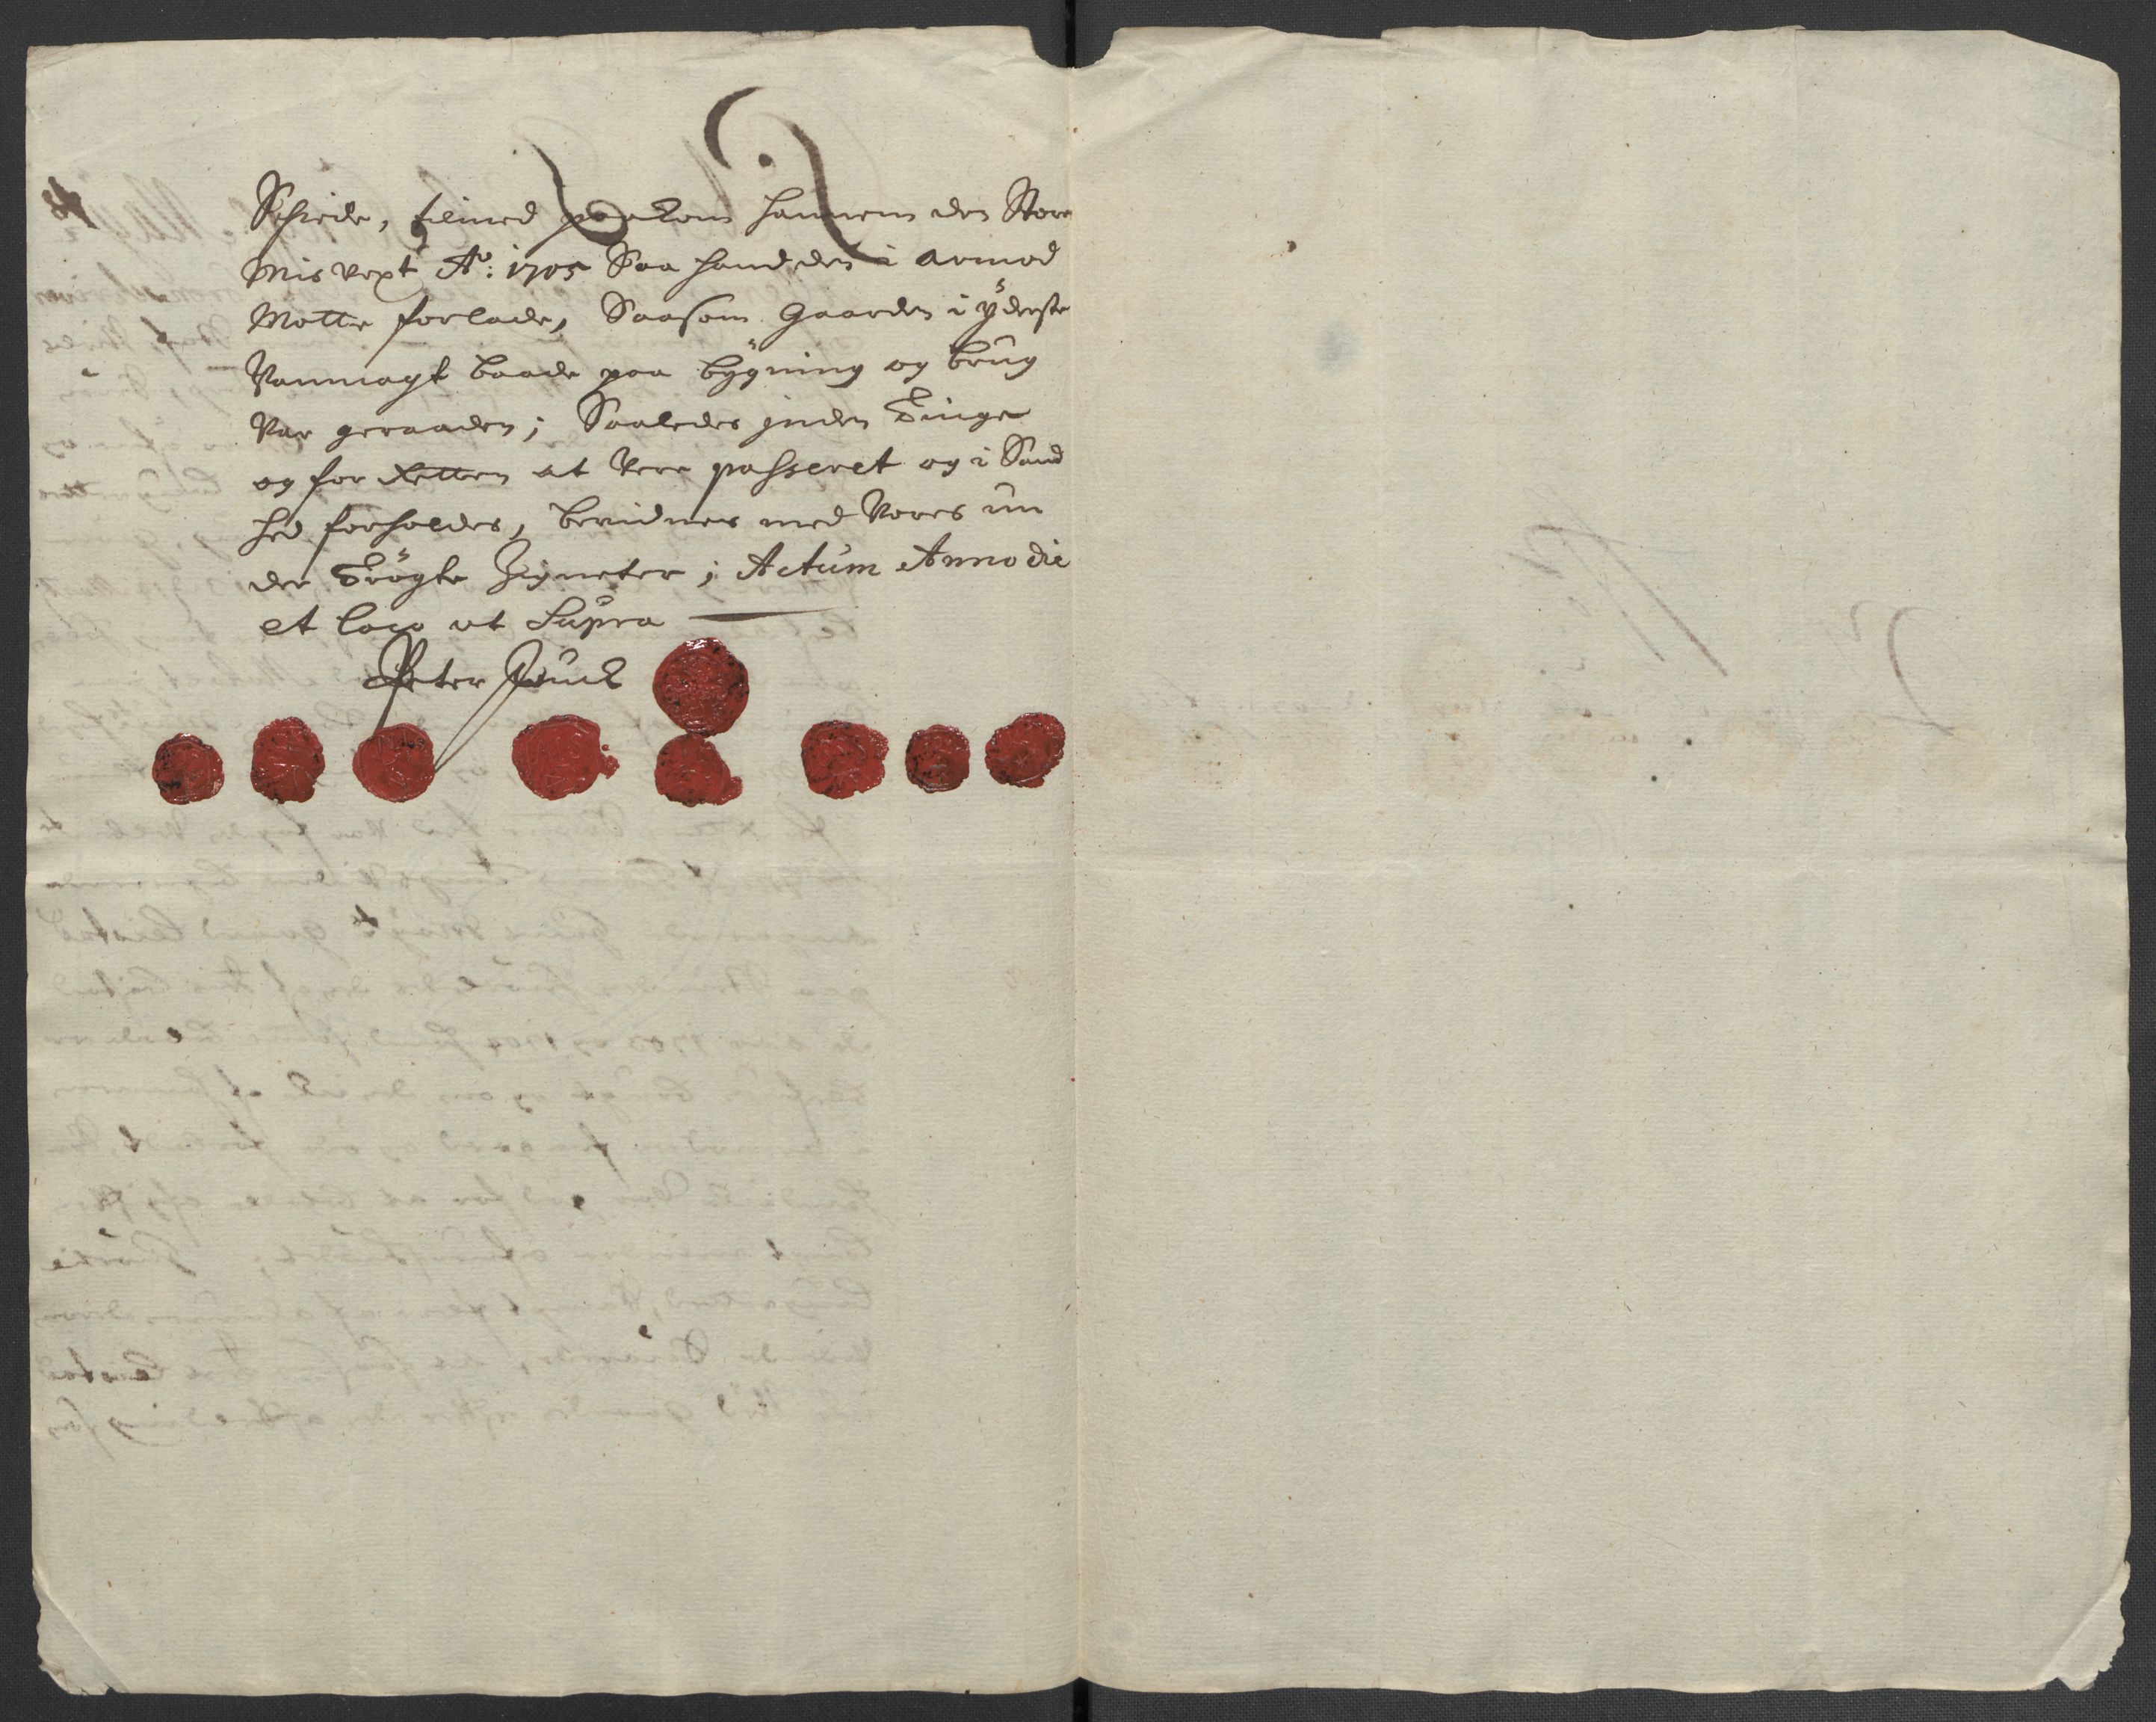 Schiede, tilmed paakom hannem den Store
Misvext Ao: 1705 Saa hand den i armod
Motte forlade, Saasom Gaarden i ÿderste
Vanmagt baade paa bÿgning og brug
Var geraaden; Saaledes inden Tinge
og for Retten at Vere passeret og i Sand
hed forholdes, bevidnes med Vores un
der Trögte Zigneter; Actum Anno die
et loco ut Supra
Peter